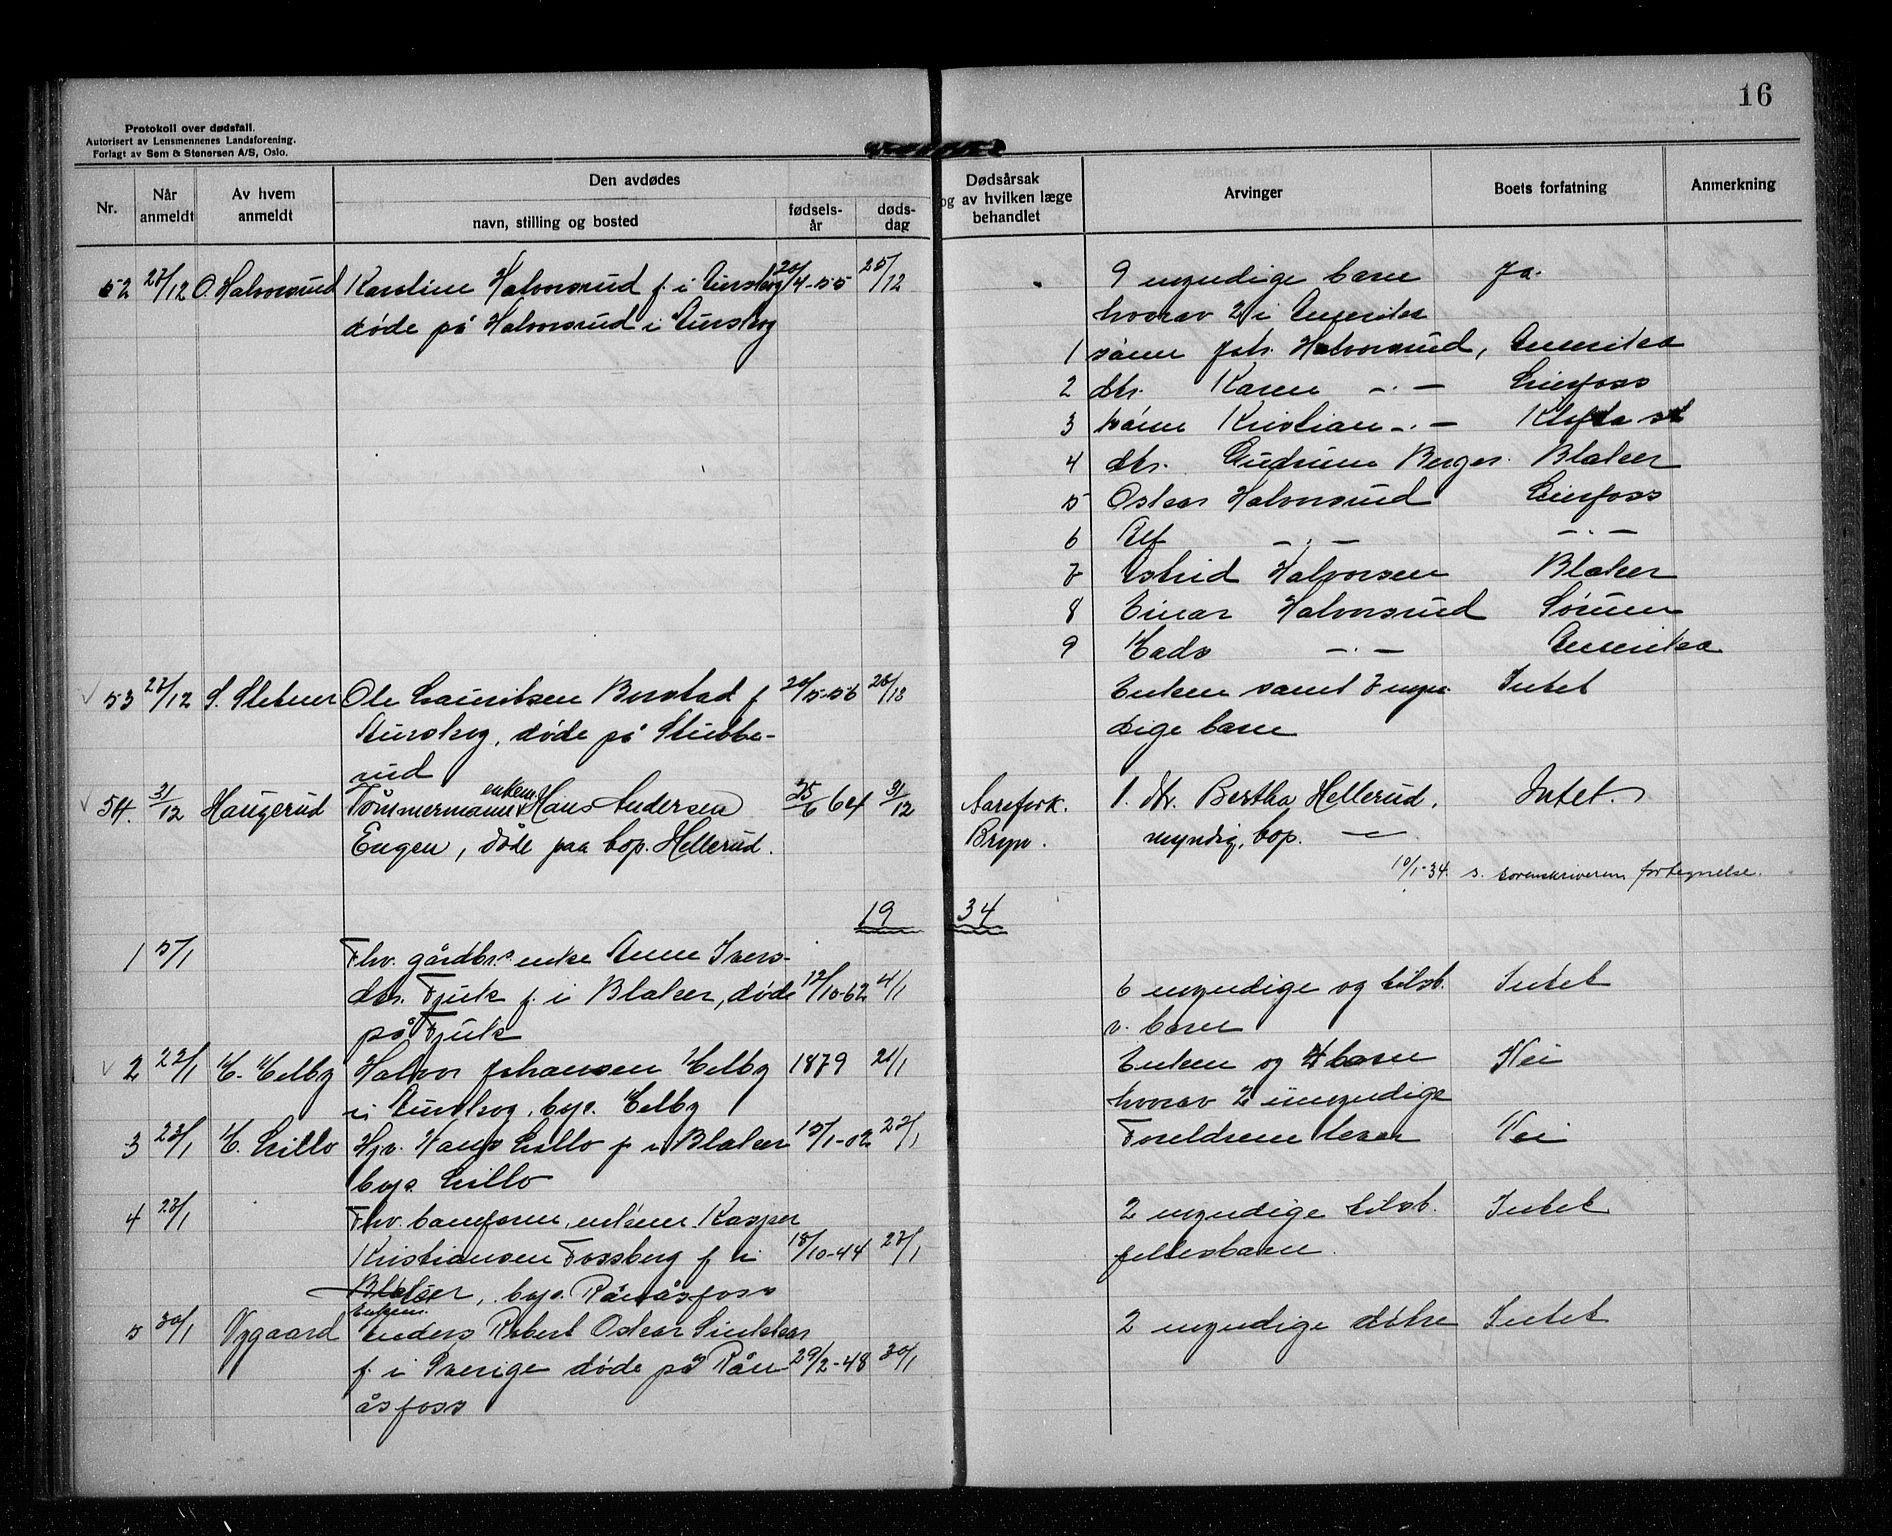 16
Protokoll over dødsfall.
Autorisert av Lensmennenes Landsforening.
Forlagt av Sem & Stenersen A/S, Oslo.
Nr.
Når anmeldt
Av hvem anmeldt
Den avdødes
navn, stilling og bosted
fødsels-år
døds-dag
Dødsårsak og av hvilken læge behandlet
Arvinger
Boets forfatning
Anmerkning
52 27/12 O. Halvorsrud Karoline Halvorsrud f. i Aurskog 20/4-55 25/12 9 myndige barn Ja.
døde på Halvorsrud i Aurskog hvorav 2 i Amerika
1 sønn Joh. Halvorsrud, Amerika
2 dtr. Karen -.- Lierfoss
3 sønn Kristian -.- Kløfta st
4 dtr. Gudrun Berger. Blaker
5 Oskar Halvorsrud Lierfoss
6 Alf -.- -.-
7 Astrid Halvorsen Blaker
8 Einar Halvorsrud Sørum
9 -.- Amerika
53 27/12 S. Sletner Ole Lauritsen Borstad f 20/5-56 Enken samt 7 myn- Intet
Aurskog, døde på Stubbe- dige barn
rud
54. 31/12 Haugerud Tømmermann enken Hans Andersen 25/6 64 31/12 Aarefork. 1. dtr. Bertha Hellerud. Intet.
Engen, døde paa bop. Hellerud. Bryn. myndig, bop. -
10/1-34. s. sorenskriverens fortegnelse.
19 34
1 5/1 Fhv. gårdbr.s. enke Anne Ivers-
dtr. Fjuk f. i Blaker, døde 12/10-62 4/1 6 myndige og tilst. Intet
på Fjuk v. barn
2 22/1 E. Eelby Halvor Johansen Eelby 1879 21/1 Enken og 4 barn Nei
i Aurskog, bop. Eelby hvorav 2 umyndige
3 23/1 H. Lillo Hans Lillo f. i Blaker 15/1-02 22/1 Foreldrene lever Nei
bop. Lillo
4 23/1 Fhv. enkem. Kasper 2 myndige tilst. Intet
Kristiansen Fossberg f. i 18/10-44 22/1 fellesbarn.
Blaker, bop. Rånåsfoss
5 30/1 Vygaard Enkem. Anders Robert Oskar 2 myndige døtre Intet
f. i Sverige døde på Rån 29/2-48 30/1
åsfoss